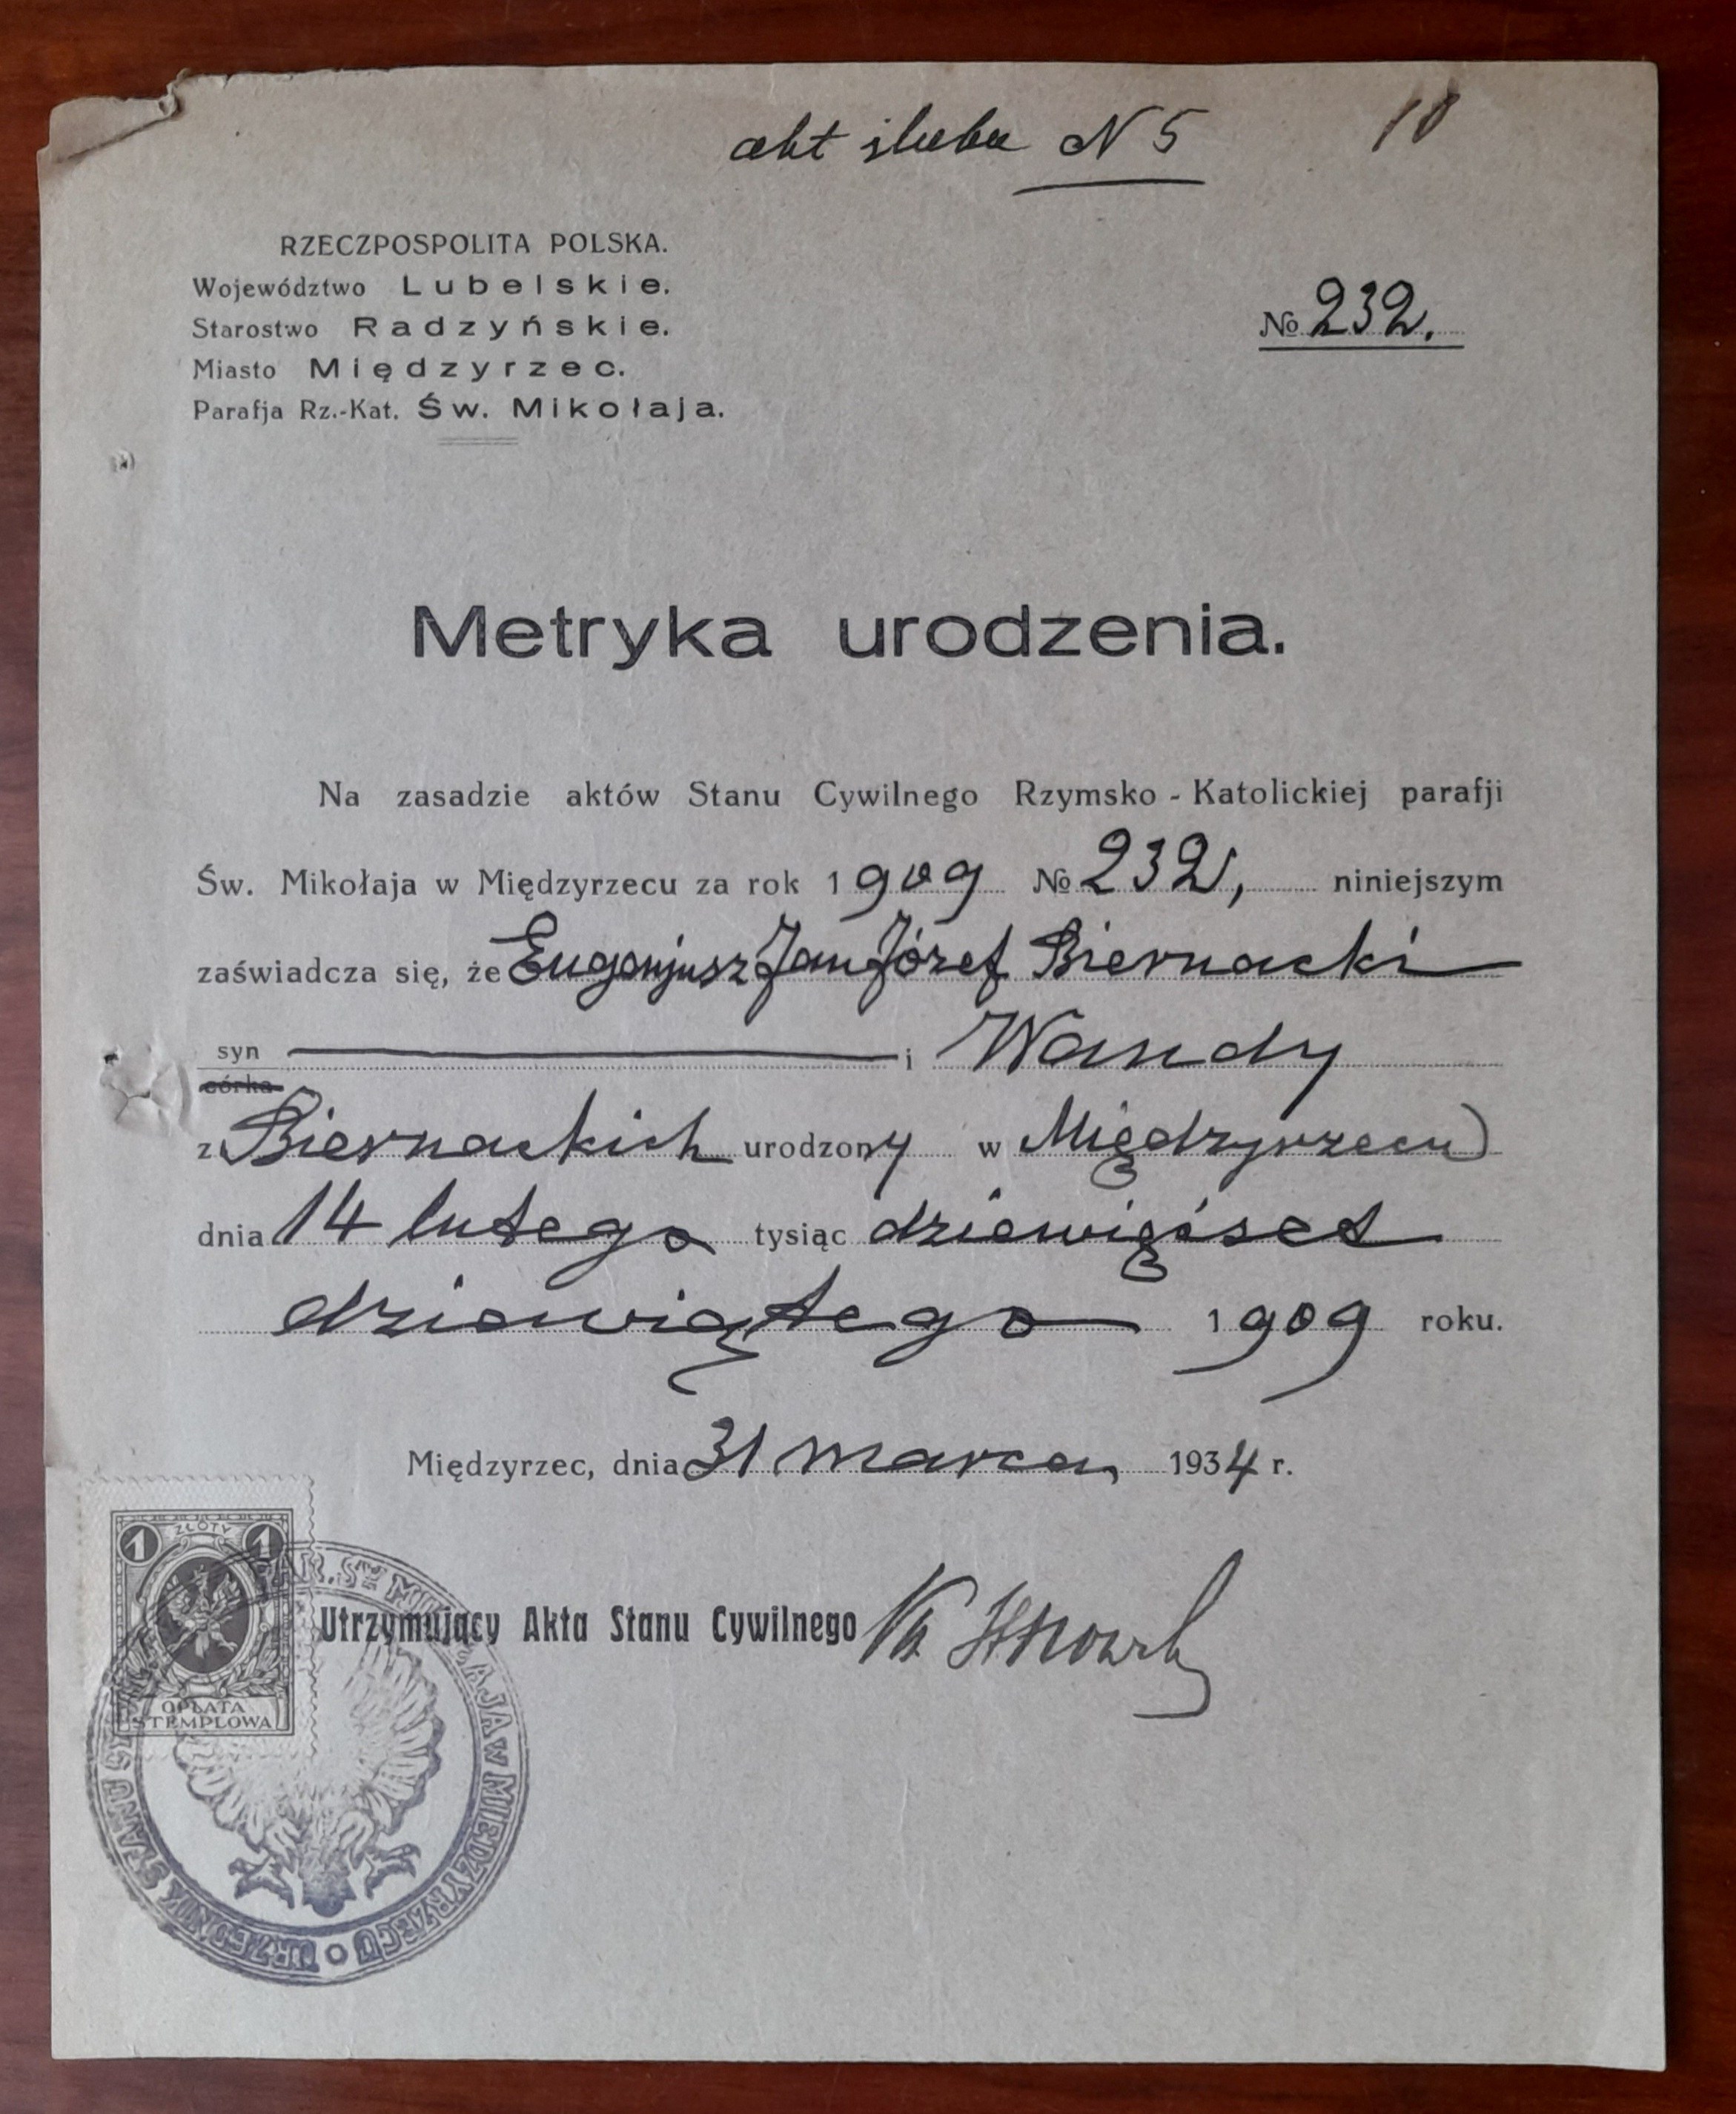 akt ślubu N 5
18
RZECZPOSPOLITA POLSKA.
Województwo Lubelskie.
Starostwo Radzyńskie.
Miasto Międzyrzec.
Parafja Rz.-Kat. Św. Mikołaja.
№ 232.
Metryka urodzenia.
Na zasadzie aktów Stanu Cywilnego Rzymsko - Katolickiej parafji
Św. Mikołaja w Międzyrzecu za rok 1909 № 232, niniejszym
zaświadcza się, że Eugenjusz Jan Józef Biernacki
syn i Wandy
córka
z Biernackich urodzony w Międzyrzecu
dnia 14 lutego tysiąc dziewięćset
dziewiątego 1909 roku.
Międzyrzec, dnia 31 marca, 1934 r.
1 ZŁOTY 1
OPŁATA
STEMPLOWA
Utrzymujący Akta Stanu Cywilnego
URZĘDNIK STANU PAR. Św MIKOŁAJA W MIĘDZYRZECU